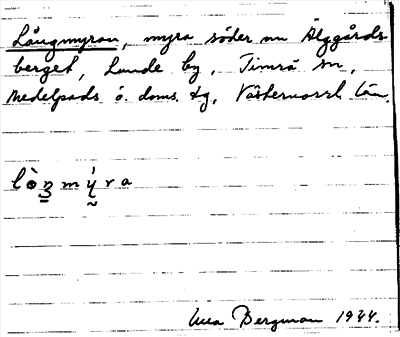 Långmyran, myra söder om Älggårds-
berget, Lunde by, Timrå sn,
Medelpads ö. doms. tg, Västernorrl. län.
lòŋmýra
Bergman 1944.